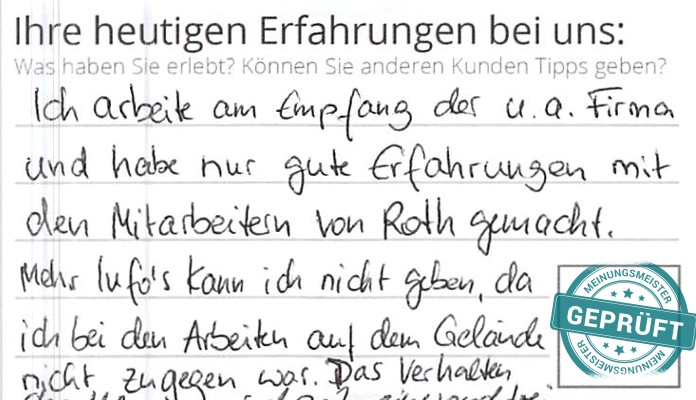 Ihre heutigen Erfahrungen bei uns:
Was haben Sie erlebt? Können Sie anderen Kunden Tipps geben?
Ich arbeite am Empfang der u. a. Firma
und habe nur gute Erfahrungen mit
den Mitarbeitern von Roth gemacht.
Mehr Info's kann ich nicht geben, da
ich bei den Arbeiten auf dem Gelände
nicht zugegen war. Das Verhalten
MEINUNGSMEISTER
GEPRÜFT
MEINUNGSMEISTER